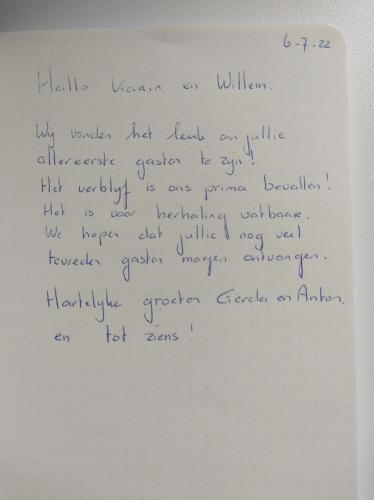 6-7-22
Hallo Karin en Willem.
Wij vonden het leuk om jullie
allereerste gasten te zijn!
Het verblijf is ons prima bevallen!
Het is voor herhaling vatbaar.
We hopen dat jullie nog veel
tevreden gasten mogen ontvangen.
Hartelijke groeten Gerda en Anton.
en tot ziens!